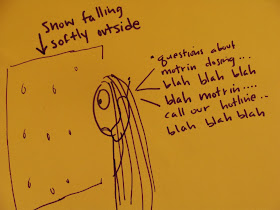 Snow falling
softly outside
"questions about
motrin dosing...
blah blah blah
blah motrin....
call our hotline..
blah blah blah